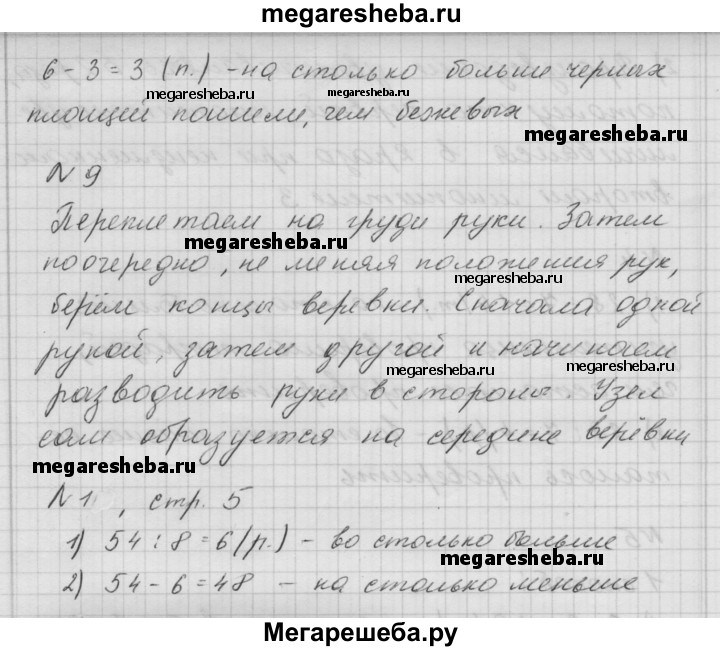 megaresheba.ru
6 - 3 = 3 (п.) - на столько больше черных
megaresheba.ru megaresheba.ru
плащей пошили, чем бежевых
megaresheba.ru
N 9
Переплетаем на груди руки. Затем
megaresheba.ru
поочередно, не меняя положения рук,
megaresheba.ru
берём концы веревки. Сначала одной
megaresheba.ru
рукой, затем другой и начинаем
megaresheba.ru megaresheba.ru
разводить руки в стороны. Узел
сам образуется на середине верёвки
megaresheba.ru
N 1, стр. 5
1) 54 : 8 = 6 (р.) - во столько больше
megaresheba.ru
2) 54 - 6 = 48 - на столько меньше
megaresheba.ru
Мегарешеба.ру